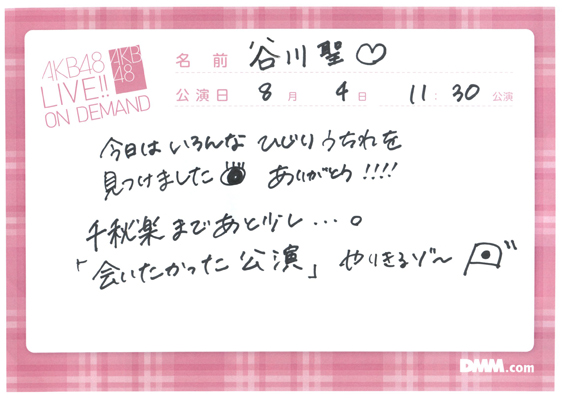 AKB48
LIVE!!
ON DEMAND
AKB
48
名前 谷川聖♡
公演日 8月 4日 11:30 公演
今日は いろんな ひじりうちわを
見つけました ありがとう!!!!
千秋楽まであと少し…。
「会いたかった公演」やりきるゾ〜
DMM.com